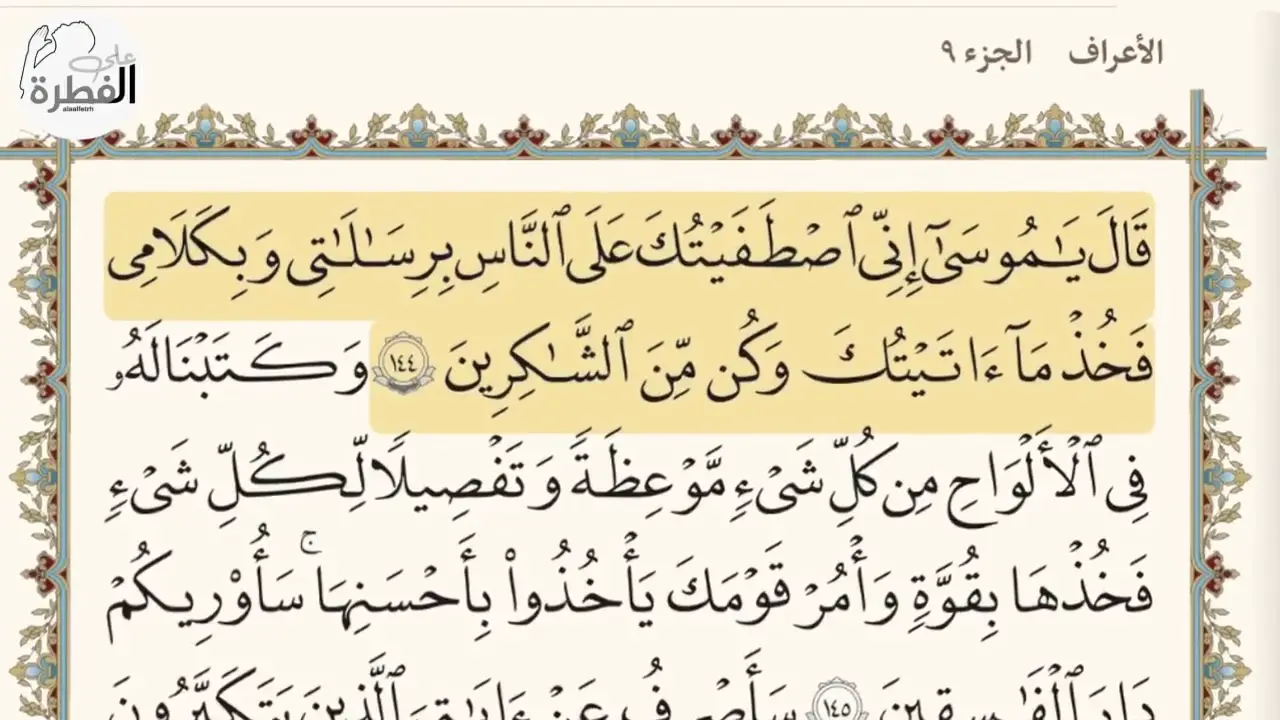 على
الفطرة
alaalfetrh
الأعراف الجزء ٩
قَالَ يَـٰمُوسَىٰٓ إِنِّى ٱصْطَفَيْتُكَ عَلَى ٱلنَّاسِ بِرِسَـٰلَـٰتِى وَبِكَلَـٰمِى
فَخُذْ مَآ ءَاتَيْتُكَ وَكُن مِّنَ ٱلشَّـٰكِرِينَ ١٤٤ وَكَتَبْنَا لَهُۥ
فِى ٱلْأَلْوَاحِ مِن كُلِّ شَىْءٍ مَّوْعِظَةً وَتَفْصِيلًا لِّكُلِّ شَىْءٍ
فَخُذْهَا بِقُوَّةٍ وَأْمُرْ قَوْمَكَ يَأْخُذُوا۟ بِأَحْسَنِهَا ۚ سَأُو۟رِيكُمْ
دَارَ ٱلْفَـٰسِقِينَ ١٤٥ سَأَصْرِفُ عَنْ ءَايَـٰتِىَ ٱلَّذِينَ يَتَكَبَّرُونَ